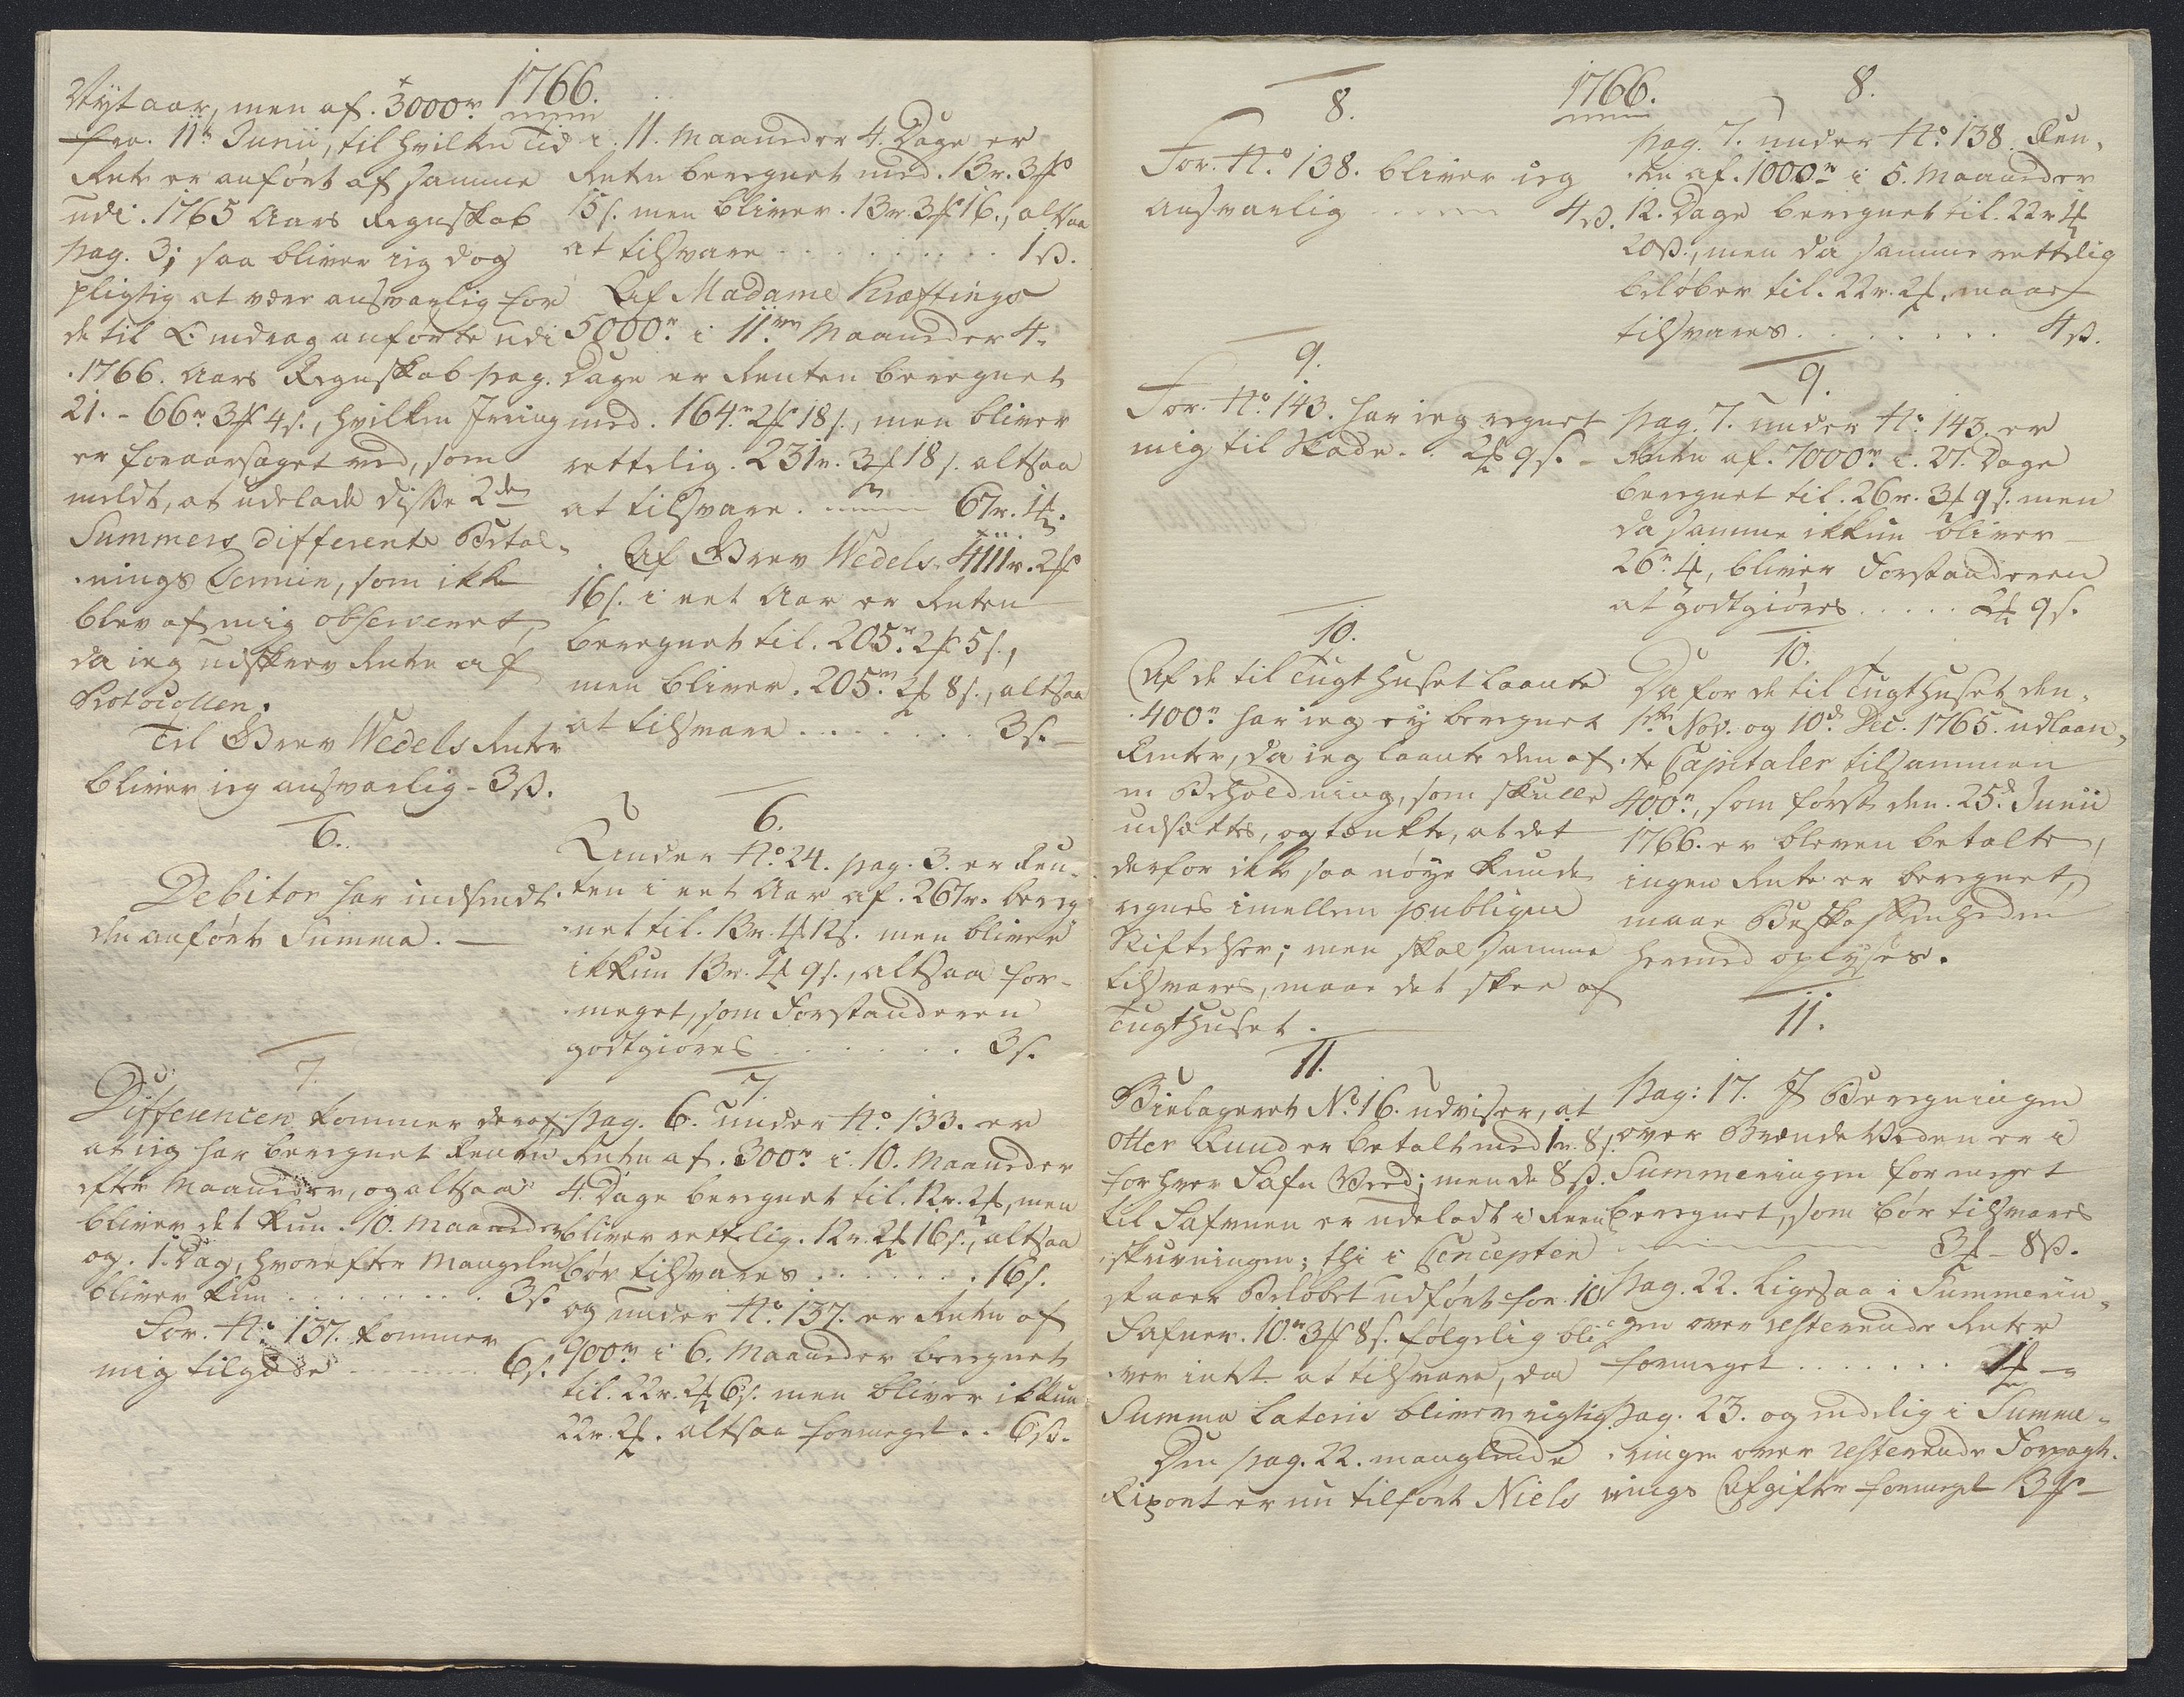 1766.
Nytaar, men af 3000r
fra. 11te Junii, til hvilken Tid
Rente er anført af samme
udi. 1765 Aars Regnskab
pag. 3; saa bliver ieg dog
pligtig at være ansvarlig for
de til Inddrag anførte udi
1766. Aars Regnskab pag.
21. - 66r 3f 4s., hvilken Irring
er foraarsaget ved, som
meldt, at udelade disse 2de
Summers differente Betal-
nings Termin, som ikke
blev af mig observeret,
da ieg udskrev Rente af
Protocollen.
Til Grev Wedels Renter
bliver ieg ansvarlig - 3ß.
6.
Debitor har indsendt
den anførte Summa.
7.
Differencen kommer deraf
at ieg har beregnet Renten
efter Maaneder, og altsaa
bliver det kun. 10. Maaneder
og. 1. Dag, hvorefter Mangelen
bliver kun . . . . . . . . 3s.
For. No 137. kommer
mig tilgode . . . . 6s.
i. 11. Maaneder 4. Dage er
Renten beregnet med. 13r. 3f
15s. men bliver. 13r. 3f 16., altsaa
at tilsvare . . . . . . . 1ß.
Af Madame Kræftings
5000r i 11. Maaneder 4.
Dage er Renten beregnet
med. 164r 2f 18s., men bliver
rettelig. 231r. 3f 18s. altsaa
at tilsvare. 67r. 1f.
Af Grev Wedels 4111r. 2f
16s. i eet Aar er Renten
beregnet til. 205r 2f 5s.,
men bliver. 205r. 2f 8s., altsaa
at tilsvare . . . . . . . 3s.
6.
Under No. 24. pag. 3. er Ren-
ten i eet Aar af. 267r. bereg-
net til. 13r. 1f 12s. men bliver
ikkun 13r. 1f 9s., altsaa for-
meget, som Forstanderen
godtgiøres . . . . . . . 3s.
7.
pag. 6. under No. 133. er
Renten af. 300r. i. 10. Maaneder
4. Dage beregnet til. 12r. 2f, men
bliver rettelig. 12r. 2f 16s., altsaa
bør tilsvares . . . . . . . 16s.
og under No. 137. er Renten af
900r i 6. Maaneder beregnet
til. 22r. 2f 6s. men bliver ikkun
22r. 2f. altsaa formeget . . 6ß.
1766.
8.
For. No. 138. bliver ieg
ansvarlig . . . . 4ß.
9.
For. No. 143. har ieg regnet
mig til Skade . . 2f 9s.
10.
Af de til Tugthuset laante
400r. har ieg ey beregnet
Renter, da ieg laante dem af
en Beholdning, som skulle
udsættes, og tænkte, at det
derfor ikke saa nøye kunde
regnes imellem publique
Stiftelser; men skal samme
tilsvares, maae det skee af
Tugthuset.
11.
Bielaget No. 16. udviser, at
Otter Lund er betalt med 1r. 8s.
for hver Fafn Veed; men de 8ß.
til Fafnen er udeladt i Reen
skrivningen; thi i Concepten
staaer Beløbet udført for. 10
Fafner. 10r. 3f 8s. følgelig bli-
ver intet at tilsvare, da
Summa Lateris bliver rigtig.
Den pag. 22. manglende
er nu tilført Niels
8.
pag. 7. under No. 138. Ren-
ten af. 1000r i 5. Maaneder
12. Dage beregnet til. 22r. 1f
20ß., men da samme rettelig
beløber til. 22r. 2f, maae
tilsvares . . . . . . . 4ß.
9.
pag. 7. under No. 143. er
Renten af. 7000r. i. 27. Dage
beregnet til. 26r. 3f 9s. men
da samme ikkun bliver
26r. 1f, bliver Forstanderen
at godtgiøres . . . . . 2f 9s.
10.
Da for de til Tugthuset den
1ste Nov. og 10de Dec. 1765. udlaan-
te Capitaler tilsammen
400r., som først den. 25de Junii
1766. er bleven betalte,
ingen Rente er beregnet,
maae Beskaffenheden
hermed oplyses.
11.
Pag: 17. I Beregningen
over Brænde Veden er i
Summeringen formeget
beregnet, som bør tilsvares
3f - 8ß.
Pag. 22. ligesaa i Summerin-
gen over resterende Renter
formeget . . . . . . . 1f -
Pag. 23. og endelig i Summe-
ringen over resterende Forpagt-
nings Afgifter formeget 3f -